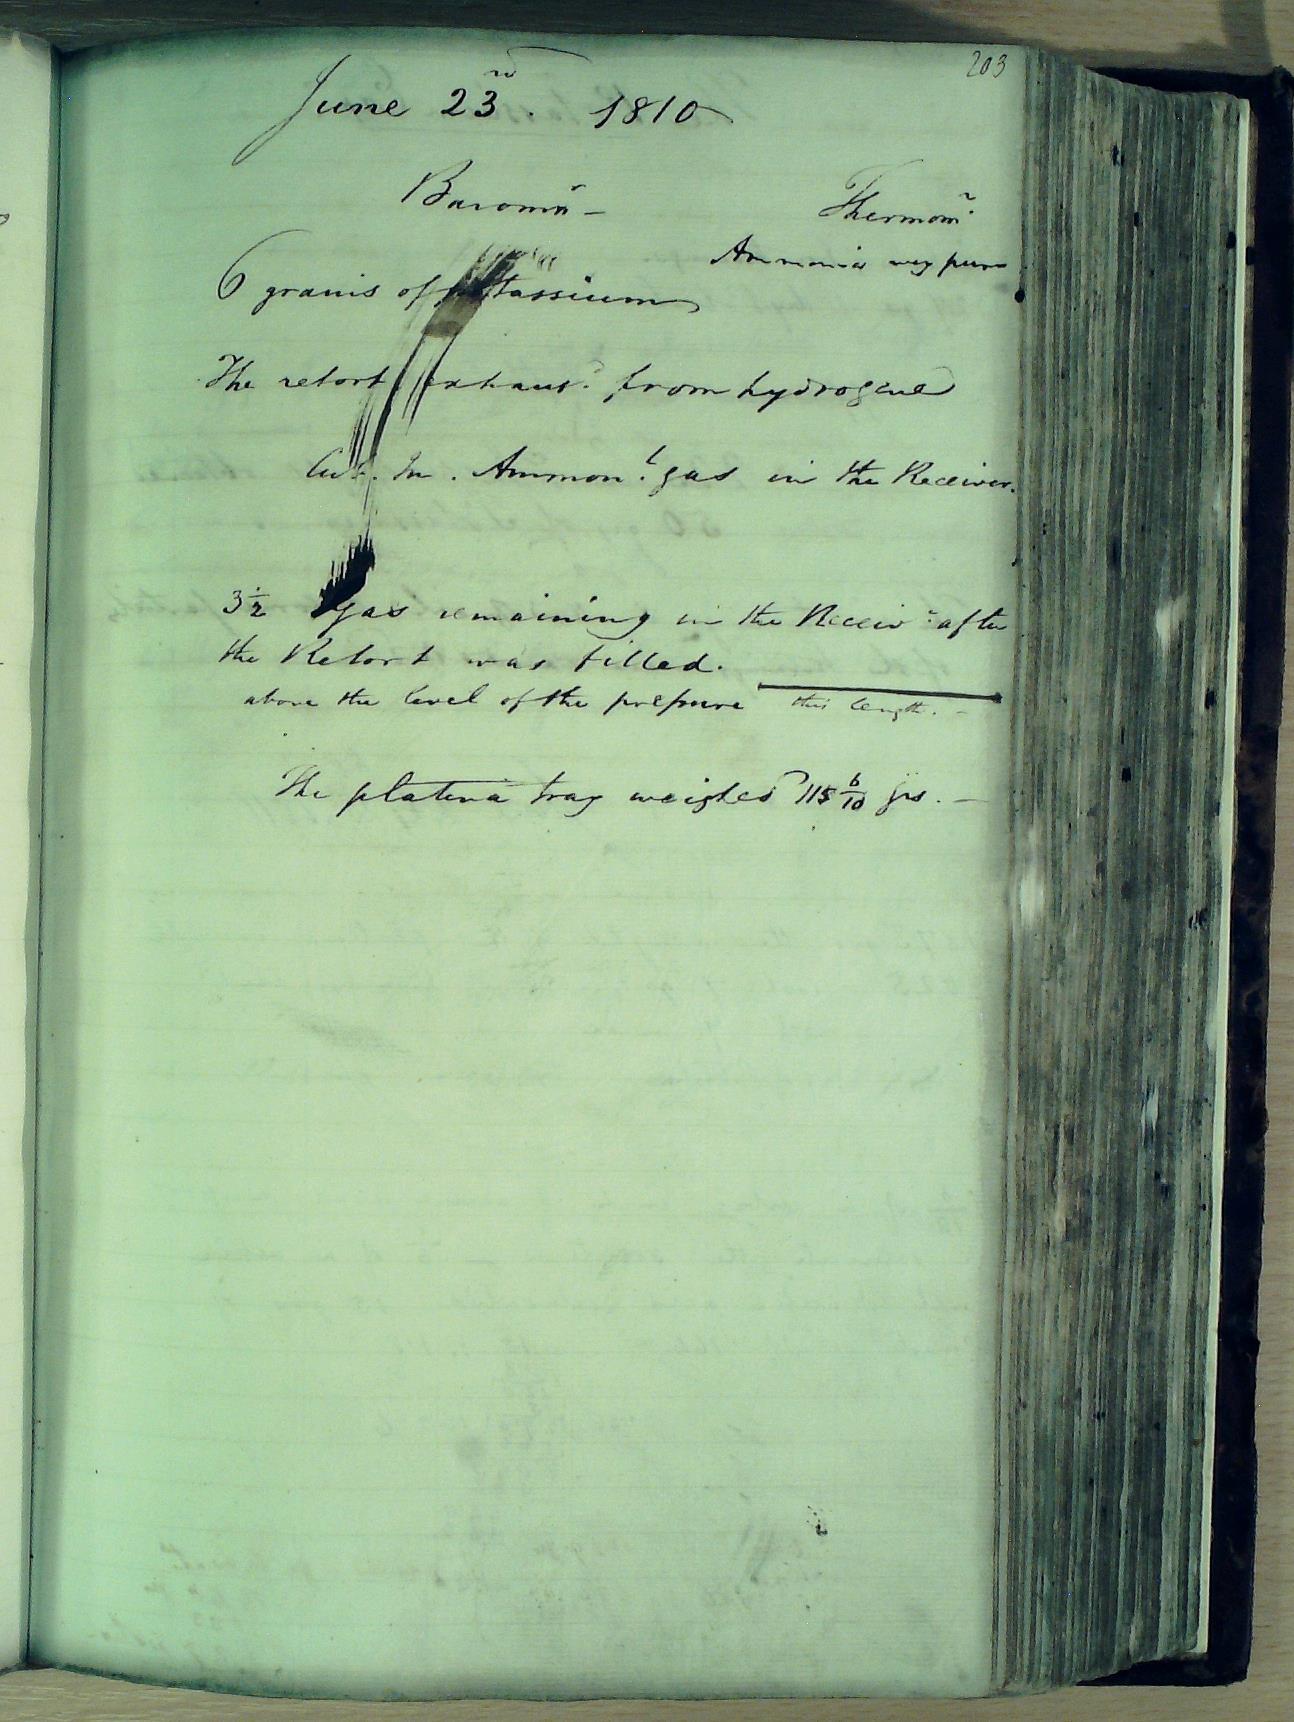 203
June 23rd. 1810
Baromr - Thermomr.
Ammonia very pure
6 grains of potassium
The retort exhausd. from hydrogene
Cub. In. Ammonl. gas in the Receiver.
3 1/2 gas remaining in the Receivr. after
the Retort was filled.
above the level of the pressure this length. -
The platina tray weighed 115 6/10 grs. -